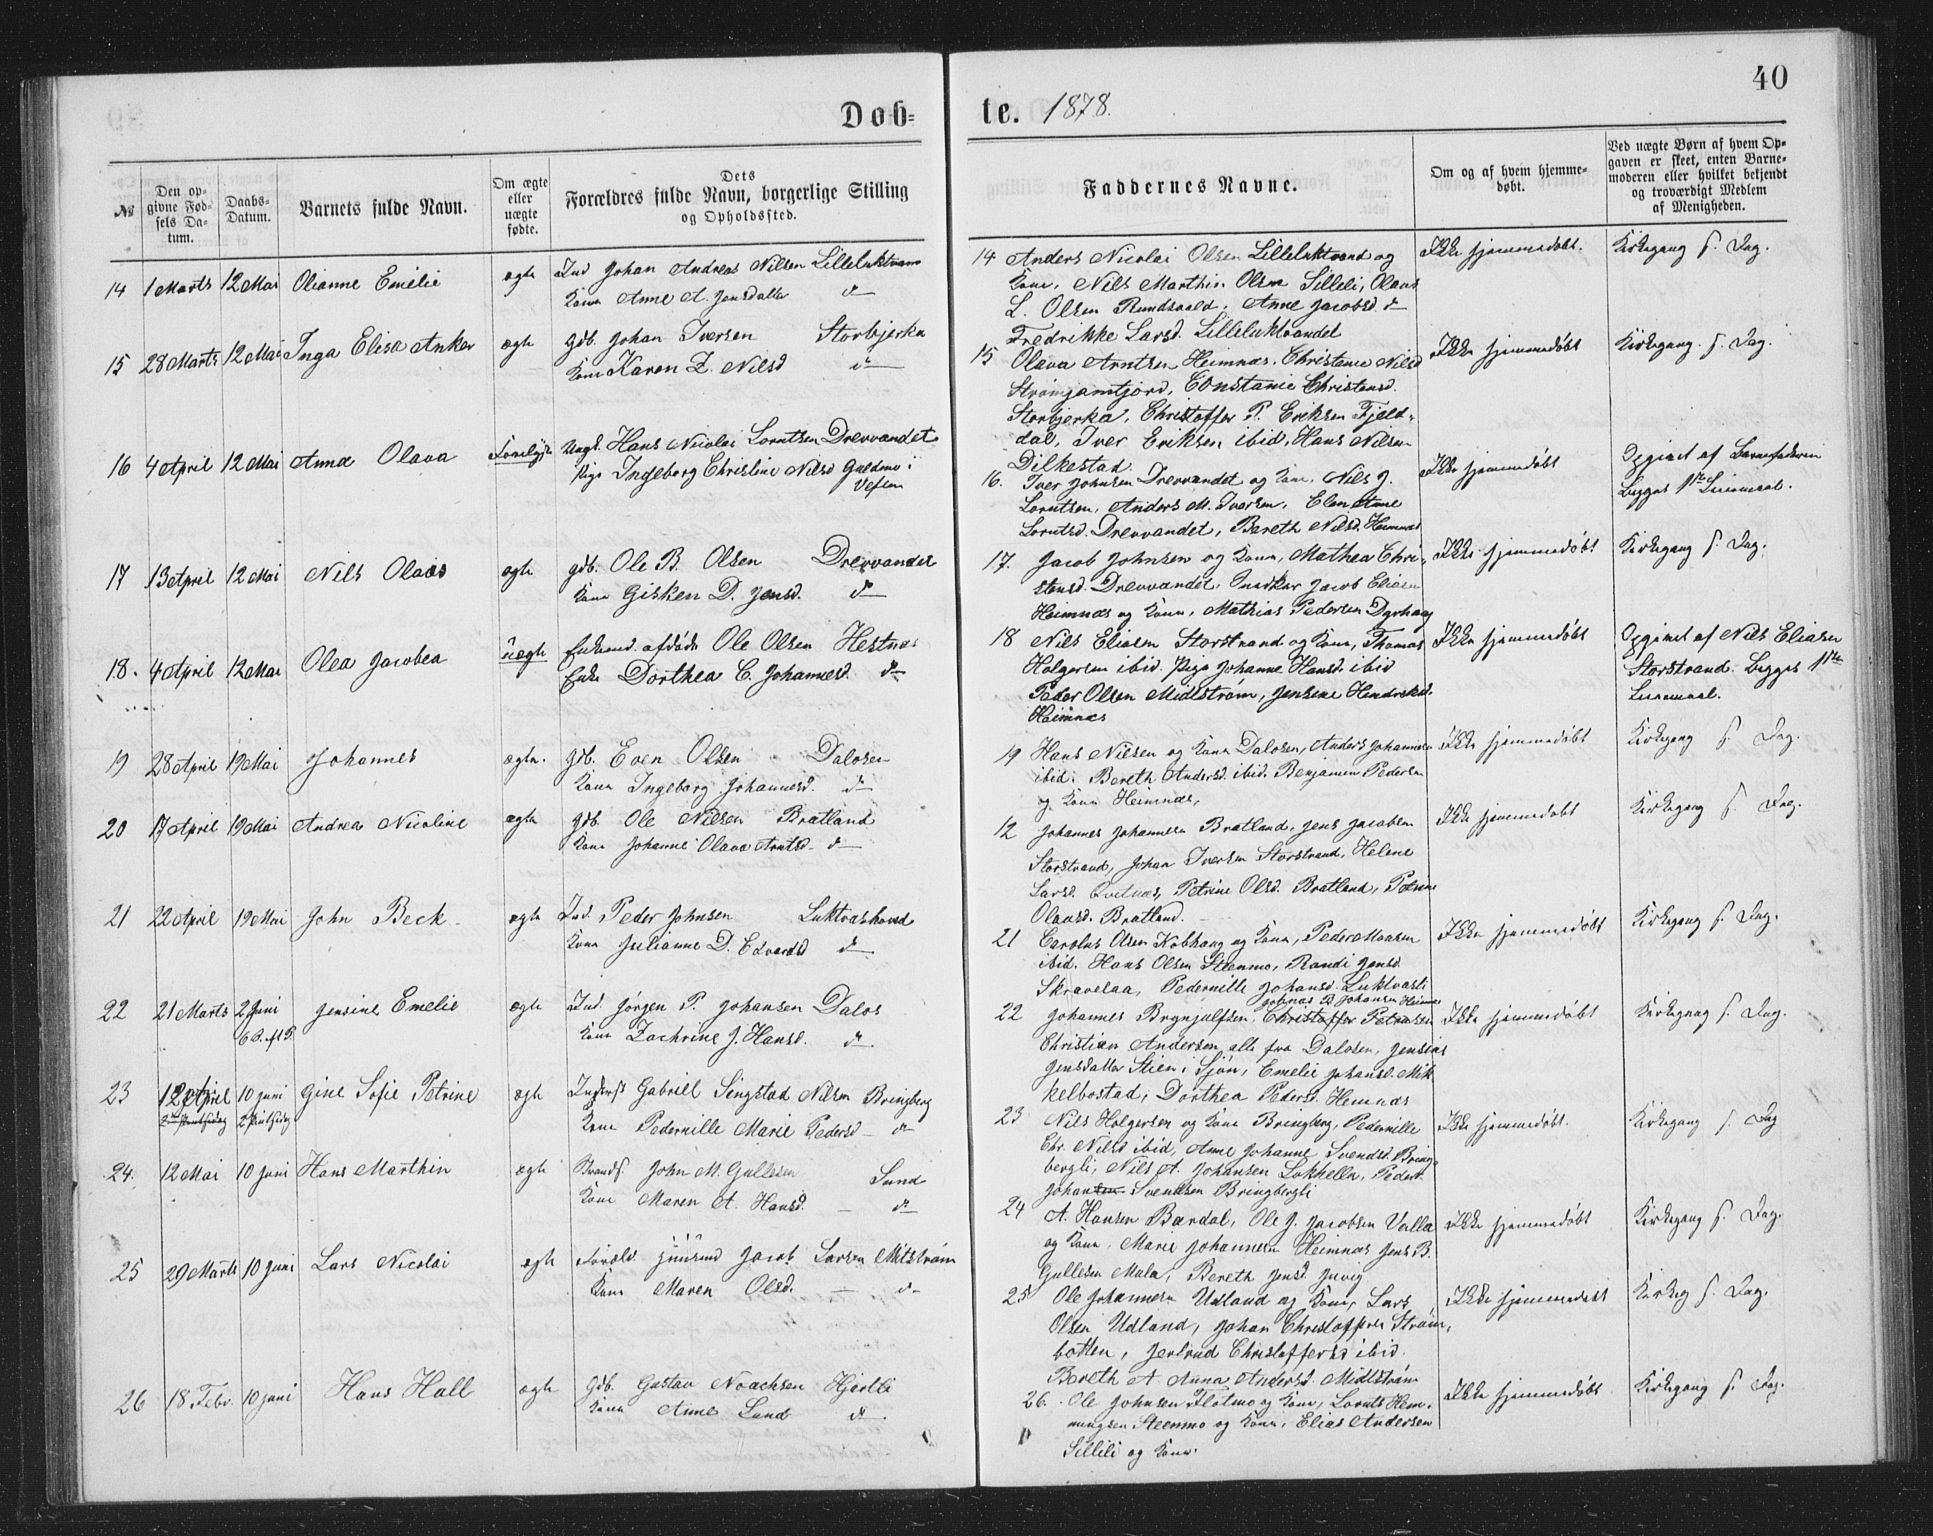 40
Døb=
te. 1878.
№
Den op-
givne Fød-
sels Da-
tum.
Daabs-
Datum.
Barnets fulde Navn.
Om ægte
eller
uægte
fødte.
Dets
Forældres fulde Navn, borgerlige Stilling
og Opholdssted.
Faddernes Navne.
Om og af hvem hjemme-
døbt.
Ved uægte Børn af hvem Op-
gaven er skeet, enten Barne-
moderen eller hvilket bekjendt
og troværdigt Medlem
af Menigheden.
14 1 Marts 12 Mai Olianne Emilie ægte Ind Johan Andreas Nilsen Lilleluktvand
Kone Anne A. Jensdatter do
15 28 Marts 12 Mai Inga Elisa Anker ægte Gdb. Johan Iversen Storbjerka
Kone Karen D. Nilsd do
16 4 April 12 Mai Anna Olava Ungk. Hans Nicolai Lorntsen Drevvandet
Pige Ingeborg Christine Nilsd i
Vefsen
17 13 April 12 Mai Nils Olaus ægte gdb. Ole B. Olsen Drevvandet
Kone Gisken D. Jensd. do
18. 4 April 12 Mai Olea Jacobea uægte Enkemd afdøde Ole Olsen Hestnæs
Enke Dorthea C. Johannesd. do
19 28 April 19 Mai Johannes ægte. gdb. Even Olsen Dalosen
Kone Ingeborg Johannesd. do
20 17 April 19 Mai Andrea Nicoline ægte gdb. Ole Nilsen Bratland
Kone Johanne Olava Arntsd. do
21 22 April 19 Mai John Beck ægte Ind. Peder Johnsen
Kone Julianne D. Edvardsd do
22 21 Marts 2 Juni Jensine Emelie ægte Ind. Jørgen P. Johansen Dalos
6 S. ft P. Kone Zachrine J. Hansd. do
23 12 April 10 Juni Gine Sofie Petrine ægte Gabriel Singstad Nilsen Bringberg
2 Pintsedag Kone Pedernille Marie Pedersd do
24. 12 Mai 10 Juni Hans Marthin ægte Strands John M. Gullesen Sund
Kone Maren A. Hansd. do
25 29 Marts 10 Juni Lars Nicolai ægte Jacob Larsen Mitstrøm
Kone Maren Olsd. do
26 18 Febr. 10 Juni Hans Hall ægte Gdb. Gustav Noachsen Hjertli
Kone Anne Lund do
14 Anders Nicolai Olsen Lilleluktvand og Ikke hjemmedøbt. Kirkegang s. Dag.
Kone, Nils Marthin Olsen Sillili, Olaus
L. Olsen Rundsaald, Anne Jacobsd do
Fredrikke Larsd. Lilleluktvandet
15 Olava Arntsen Heimnæs, Christane Nilsd Ikke hjemmedøbt Kirkegang s. Dag.
Strømjamtjord, Constanse Christensd.
Storbjerka, Christoffer P. Eriksen Fjeld-
dal, Iver Eriksen ibid, Hans Nilsen
Dilkestad.
16. Iver Johnsen Drevvandet og Kone, Nils J. Ikke hjemmedøbt Opgivet af Barnefaderen
Lorntsen, Anders M. Iversen, Elen Anne Begges 1ste Leiermaal.
Lorntsd. Drevvandet, Bereth Nilsd. Heimnæs
17. Jacob Johnsen og Kone, Mathea Chri- Ikke hjemmedøbt Kirkegang s. Dag.
stensd. Drevvandet, Jacob Eliasen
Heimnæs og Kone, Mathias Pedersen Dyrhaug
18 Nils Eliasen Storstrand og Kone, Thomas Ikke hjemmedøbt Opgivet af Nils Eliasen
Holgersen ibid. Pige Johanne Hansd. ibid Storstrand. Begges 1ste
Peder Olsen Midtstrøm, Jensine Hendriksd. Leiermaal.
Heimnæs
19 Hans Nilsen og Kone Dalosen, Anders Johannesen Ikke hjemmedøbt Kirkegang s. Dag.
ibid. Bereth Andersd. ibid. Benjamin Pedersen
og Kone Heimnæs,
12 Johannes Johannesen Bratland, Jens Jacobsen Ikke hjemmedøbt Kirkegang s. Dag.
Storstrand, Johan Iversen Storstrand, Helene
Larsd. Qvitnæs, Petrine Olsd. Bratland, Petrine
Olausd. Bratland.
21 Carolus Olsen Kobhaug og Kone, Peder Monsen Ikke hjemmedøbt Kirkegang s. Dag.
ibid. Hans Olsen Steenmo, Randi Jensd.
Skravelaa, Pedernille Johansd. Luktvasli
Johansen Heimnæs
22 Johannes Brynjulfsen, Christoffer Petersen Ikke hjemmedøbt Kirkegang s. Dag.
Christian Andersen, alle fra Dalosen, Jensine
Jensdatter Stien i Sjøn, Emelie Johansd. Mik
kelbostad, Dorthea Pedersd. Hemnæs
23 Nils Holgersen og Kone Bringberg, Pedernille Ikke hjemmedøbt. Kirkegang s. Dag
Chr. Nilsd ibid, Anne Johanne Svendsd. Bring-
bergli, Nils A. Johansen Lukhella, Peder
Johan Svendsen Bringbergli
24 A. Hansen Bardal, Ole J. Jacobsen Valla Ikke hjemmedøbt Kirkegang s. Dag.
og Kone, Marie Johannesen Heimnæs Jens B.
Gullesen Mula, Bereth Jensd. Juvig
25 Ole Johannesen Udland og Kone, Lars Ikke hjemmedøbt Kirkeg s. Dag.
Olsen Udland, Johan Christoffersen Strøm-
botten, Jertrud Christoffersd ibid.
Bereth A Anna Andersd. Midtstrøm
26. Ole Johnsen Flotmo og Kone, Lornts Hem- Ikke hjemmedøbt Kirkegang s. Dag.
mingsen Steenmo og Kone, Elias Andersen
Sillili og Kone.